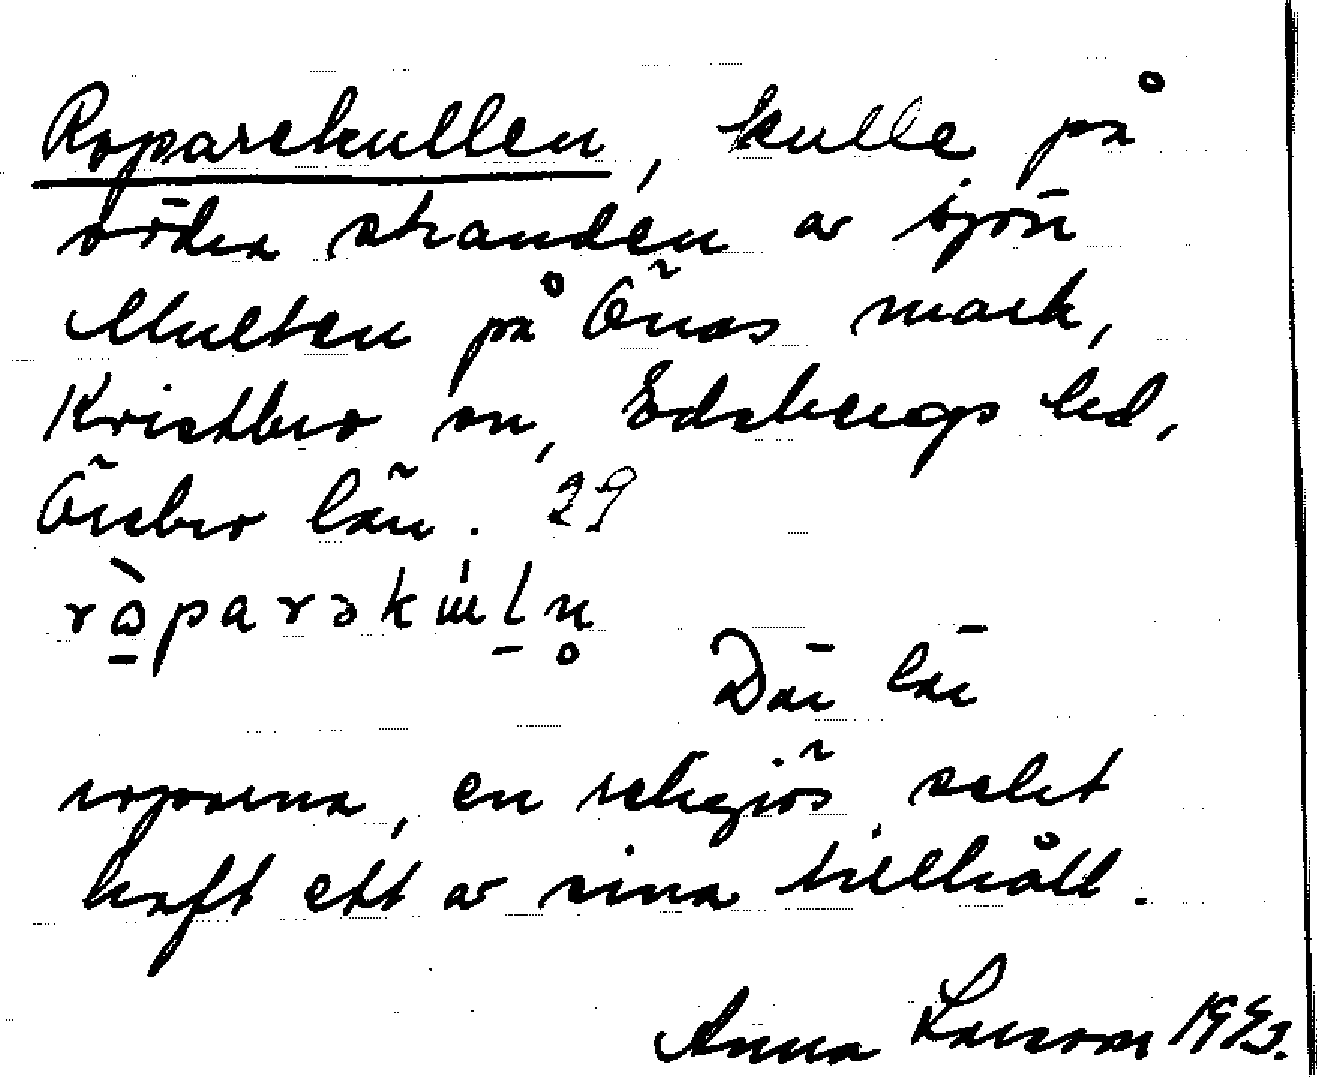 Roparekullen, kulle på
södra stranden av sjön
Multen på Önas mark,
Kvistbro sn, Edsbergs hd,
Örebro län. 29
rɷ̠̀parəkɯ́l̠n̥
Där lär
roparna, en religiös sekt
haft ett av sina tillhåll.
Anna Larsson